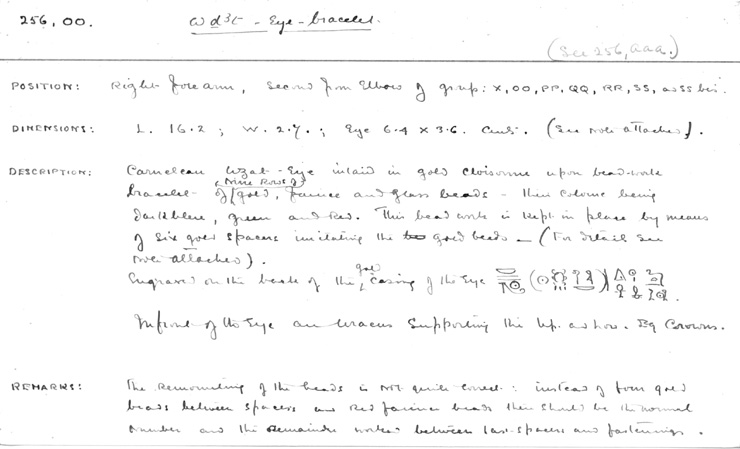 256,00. wd3t - Eye - bracelet.
(See 256,aaa.)
POSITION: Right forearm, second from Elbow of group: X, OO, PP, QQ, RR, SS, and SS bis.
DIMENSIONS: L. 16.2 ; W. 2.7. ; Eye 6.4 x 3.6. Cent. (See note attached).
DESCRIPTION: Carnelean Uzat-Eye inlaid in gold cloisonné upon bead-work
bracelet of (nine rows of) gold, faience and glass beads - their colours being
darkblue, green and red. This bead work is kept in place by means
of six gold spacers imitating the gold beads - (For details see
note attached).
Engraved on the back of the gold casing of the Eye
Infront of the Eye an uraeus supporting the Up. and Low. Eg Crowns.
REMARKS: The remounting of the beads is not quite correct: instead of four gold
beads between spacers and red faience beads there should be the normal
number and the remainder worked between last spacers and fastenings.